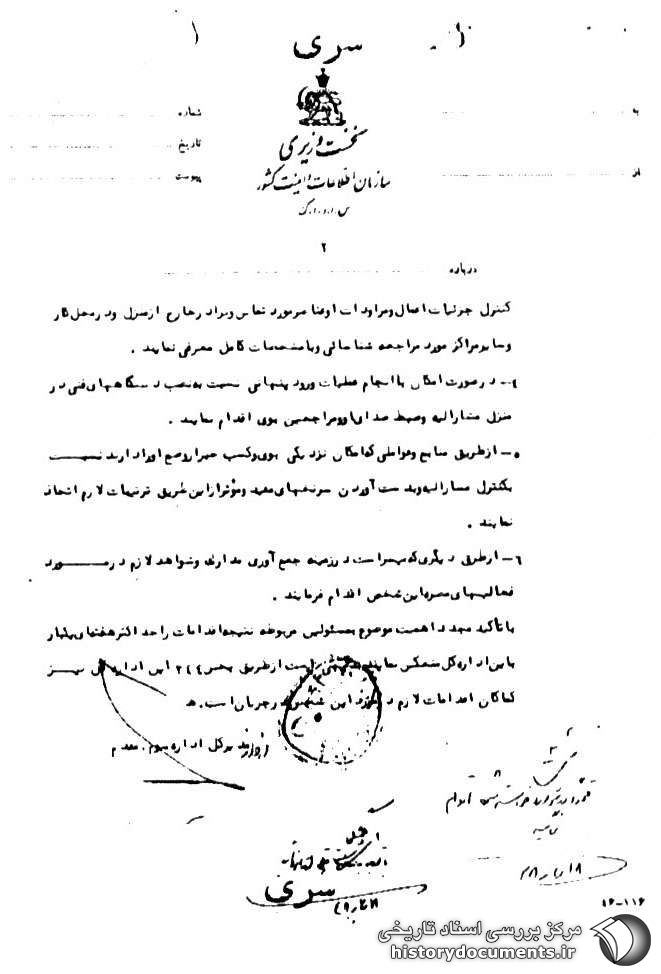 سری
به
شماره
تاریخ
از
پیوست
نخست وزیری
سازمان اطلاعات و امنیت کشور
س.ا.و.ا.ک
۲
درباره
کنترل جزئیات اعمال و مراودات او عناصر مورد تماس ویرا در خارج از منزل و در محل کار
و سایر مراکز مورد مراجعه شناسائی و با مشخصات کامل معرفی نمایند .
۴- در صورت امکان با انجام عملیات ورود پنهانی نسبت به نصب دستگاههای فنی در
منزل مشارالیه و ضبط صدای او و مراجعین بوی اقدام نمایند .
۵- از طریق منابع و عواملی که امکان نزدیکی بوی و کسب خبر از وضع او را دارند نسبت
بکنترل مشارالیه و بدست آوردن سرنخهای مفید و مؤثر از این طریق ترتیبات لازم اتخاذ
نمایند .
۶- از طرق دیگری که میسر است در زمینه جمع آوری مدارک و شواهد لازم در مورد
فعالیتهای مضره این شخص اقدام فرمایند .
با تأکید مجدد اهمیت موضوع بمسئولین مربوطه نتیجه اقدامات را حداکثر هفته‌ای یکبار
باین اداره کل منعکس نمایند است از طریق بخش ۲۴۴ این اداره کل نیز
کماکان اقدامات لازم در مورد این شخص در جریان است. ه
مدیر کل اداره سوم . مقدم
سری
۱۱۶-۴۶
مرکز بررسی اسناد تاریخی
historydocuments.ir